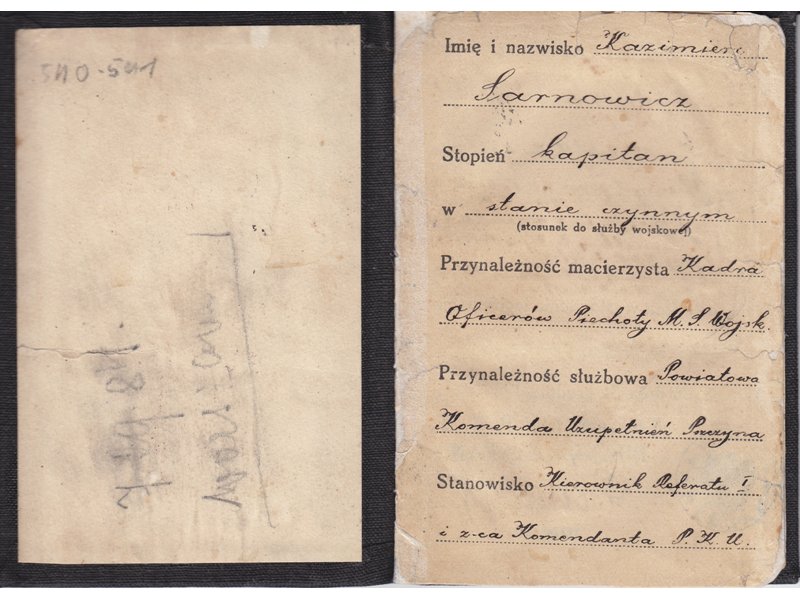 540-541
Imię i nazwisko Kazimierz
Sarnowicz
Stopień kapitan
w stanie czynnym
(stosunek do służby wojskowej)
Przynależność macierzysta Kadra
Oficerów Piechoty M. S. Wojsk.
Przynależność służbowa Powiatowa
Komenda Uzupełnień Pszczyna
Stanowisko Kierownik Referatu I
i z-ca Komendanta P. K. U.